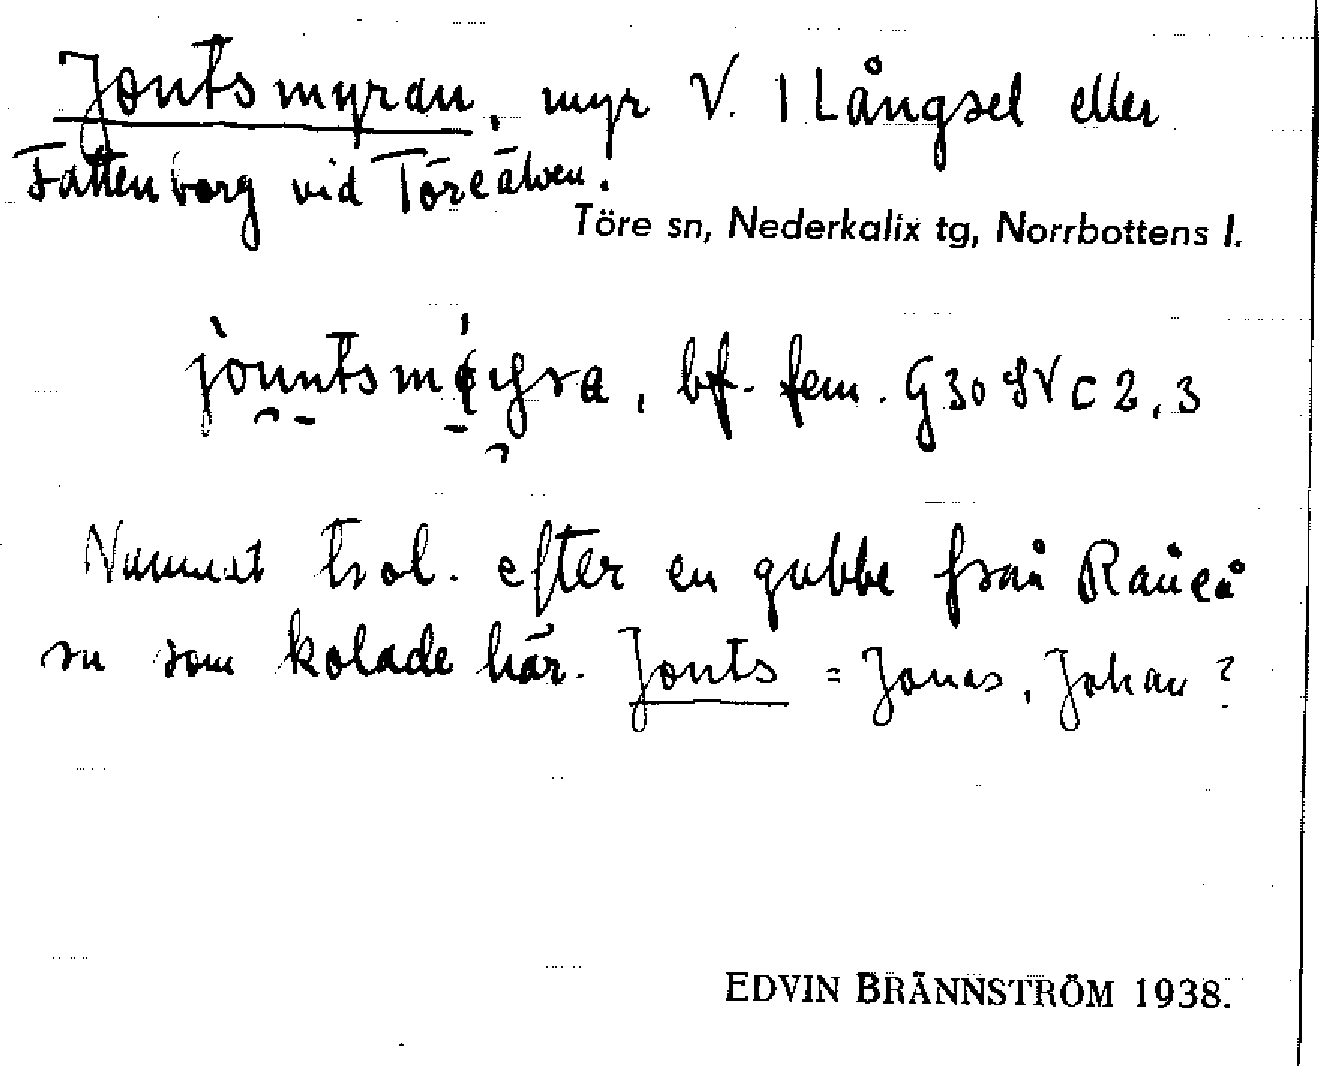 Jontsmyran, myr V. 1 Långsel eller
Fattenborg vid Töreälven.
Töre sn, Nederkalix tg, Norrbottens l.
bf. fem. G 30 SV c 2, 3
Namnet trol. efter en gubbe från Råneå
sn som kolade här. Jonts = Jonas, Johan?
EDVIN BRÄNNSTRÖM 1938.